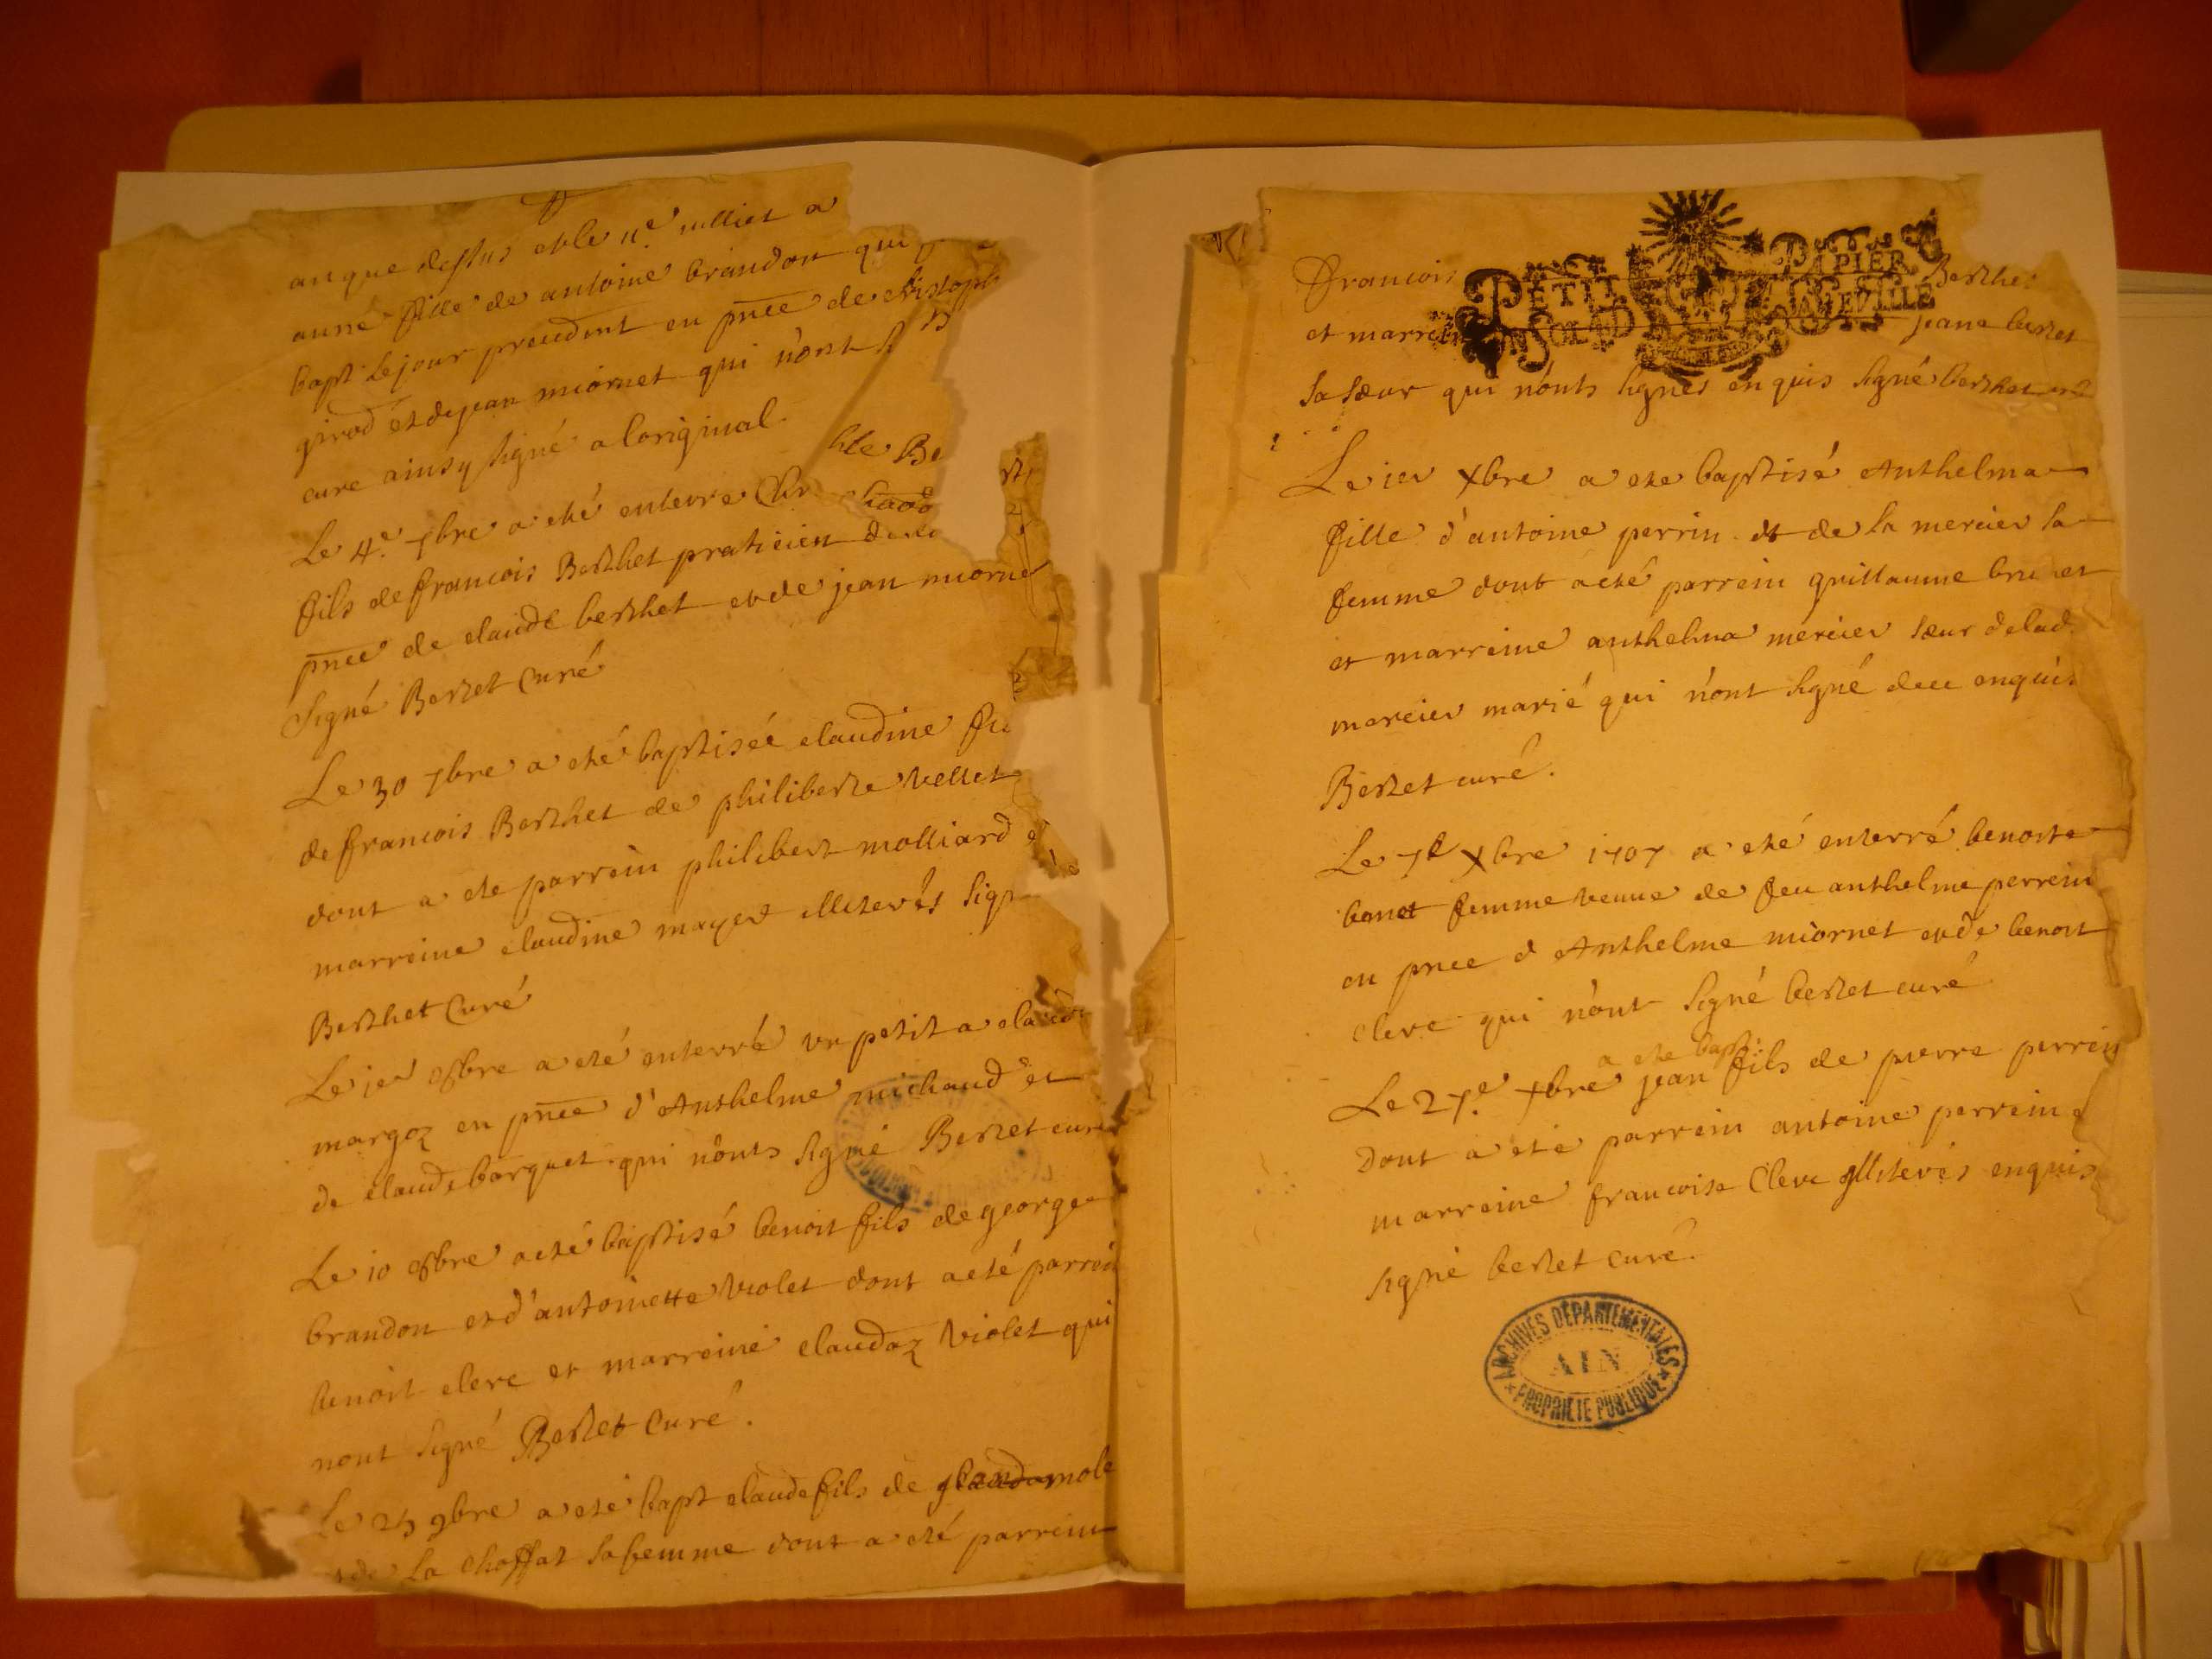 an que dessus et le 11e. juilliet a
anne fille de antoine brandon qui
bapt. le jour precedent en pnce de christoph
girod et de jean miornet qui n'ont
cure ainsy signé a loriginal.
Le 4e. 7bre a eté enterre
fils de francois Berthet praticien
pnce de claude berthet et de jean miorne
signé Berzet Curé
Le 30 7bre a eté baptisée claudine
de francois Berthet de philiberte vellet
dont a ete parrein philibert molliard
marreine claudine mayet illiterés
Berthet Curé
Le ier 8bre a eté enterré un petit a claud
margoz en pnce d'Anthelme michaud et
de claude barquet qui n'onts signé Berzet cure
Le 10 8bre a eté baptisé benoit fils de george
brandon et d'antoinette violet dont a eté parrein
benoit clerc et marreine claudaz violet qui
nont signé Berzet Curé.
Le 25 9bre a eté bapt claude fils de mole
la choffat sa femme dont a eté parrein
Francois PETIT PAPIER Berthe
et marrei jeane berzet
sa sœur qui n'onts signés enquis signé berthet
Le ier Xbre a ete baptisé Anthelma
fille d'antoine perrin et de la mercier sa
femme dont a eté parrein guillaume
et marreine anthelma mercier sœur de lad.
mercier marié qui n'ont signé de ce enquis
Berzet curé.
Le 7e Xbre 1707 a eté enterré benoite
femme veuve de feu anthelme perrein
en pnce d Anthelme miornet et de benoit
clerc qui n'ont signé berzet curé
a ete bapt.
Le 27.e Xbre jean fils de pierre perrein
Dont a eté parrein antoine perrein
marreine francoise Clerc illiterés enquis
signé berzet curé.
ARCHIVES DÉPARTEMENTALES
AIN
PROPRIÉTÉ PUBLIQUE